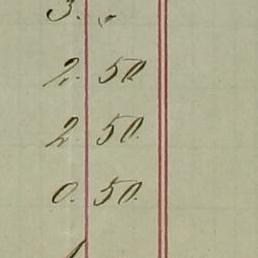 3. "
2. 50
2. 50.
0. 50.